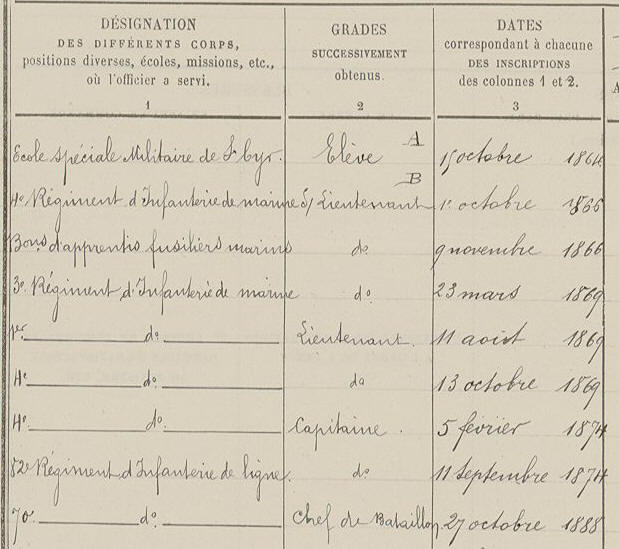 DÉSIGNATION
DES DIFFÉRENTS CORPS,
positions diverses, écoles, missions, etc.,
où l'officier a servi.
1
GRADES
SUCCESSIVEMENT
obtenus.
2
DATES
correspondant à chacune
DES INSCRIPTIONS
des colonnes 1 et 2.
3
A
Ecole spéciale Militaire de St Cyr. Elève octobre 1864
B
4e Régiment d'Infanterie de marine S/Lieutenant 1er octobre 1866
Bon d'apprentis fusiliers marins do 9 novembre 1866
3e Régiment d'Infanterie de marine do 23 mars 1869
1er do Lieutenant. 11 août 1869
4e do do 13 octobre 1869
4e do Capitaine. 5 février 1874
82e Régiment d'Infanterie de ligne. do 11 Septembre 1874
70e do Chef de Bataillon. 27 octobre 1888